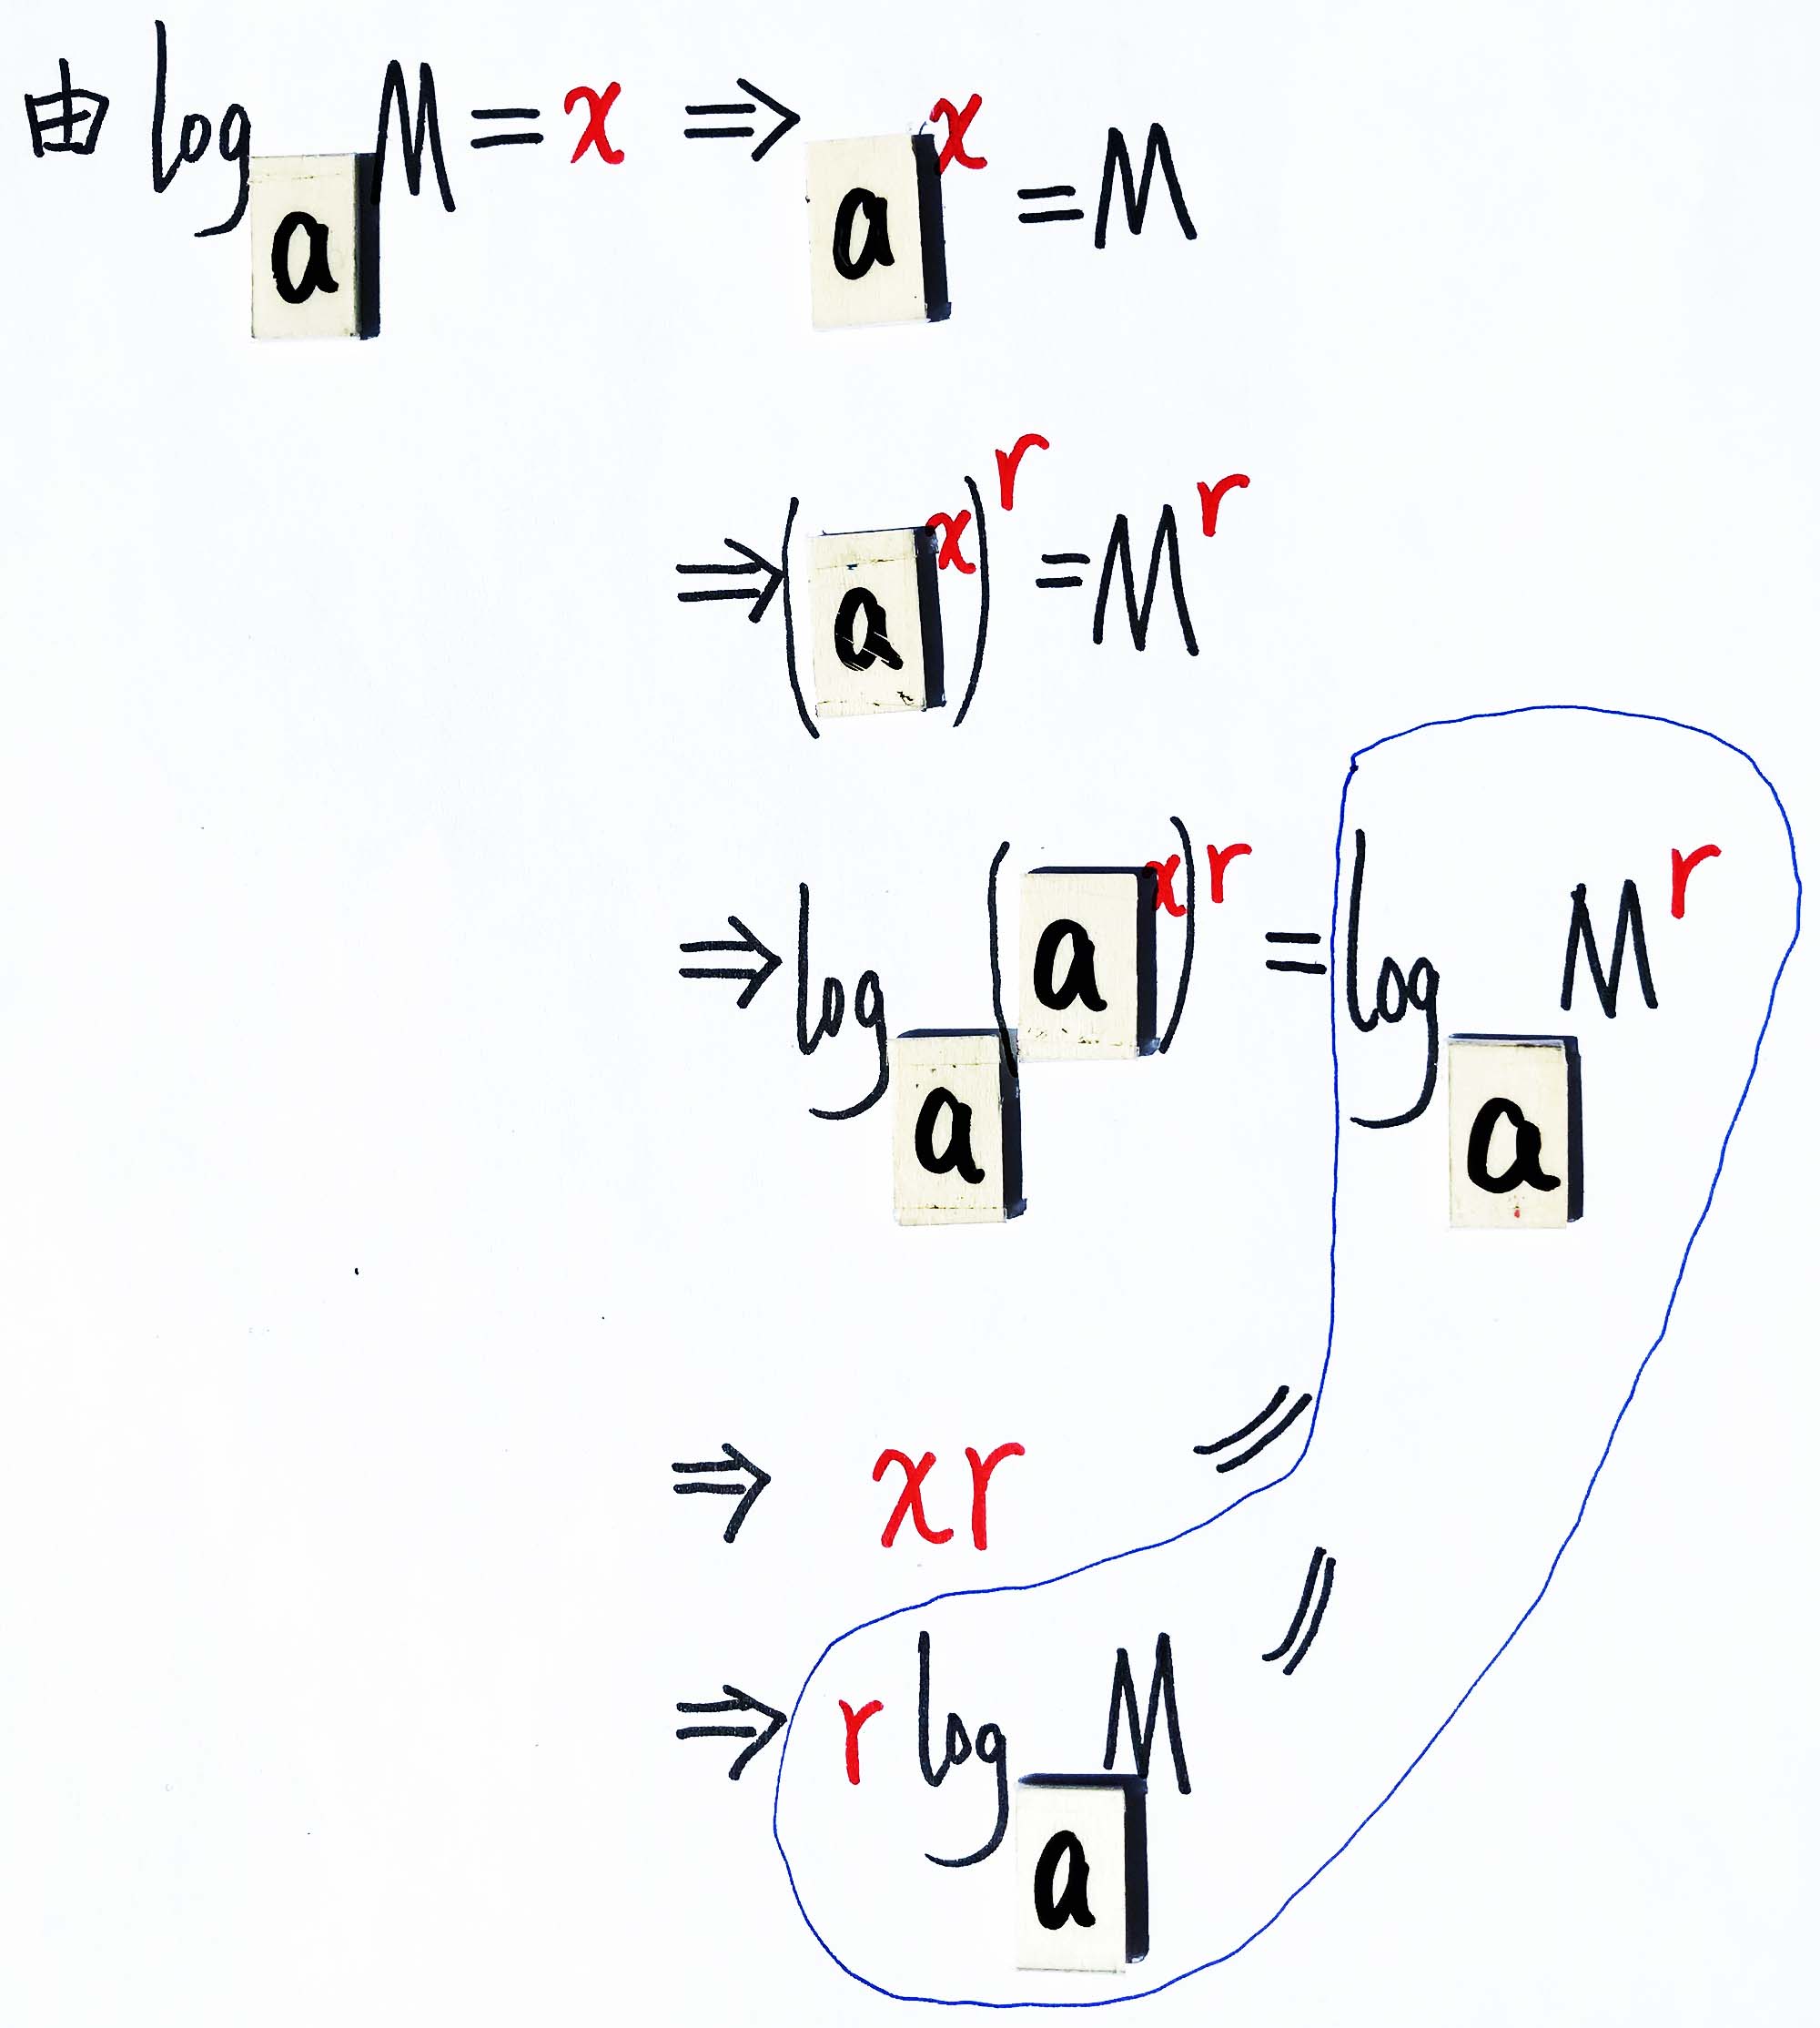 由 log_a M = x ⇒ a^x = M
⇒ (a^x)^r = M^r
⇒ log_a (a^x)^r = log_a M^r
⇒ xr =
⇒ r log_a M =